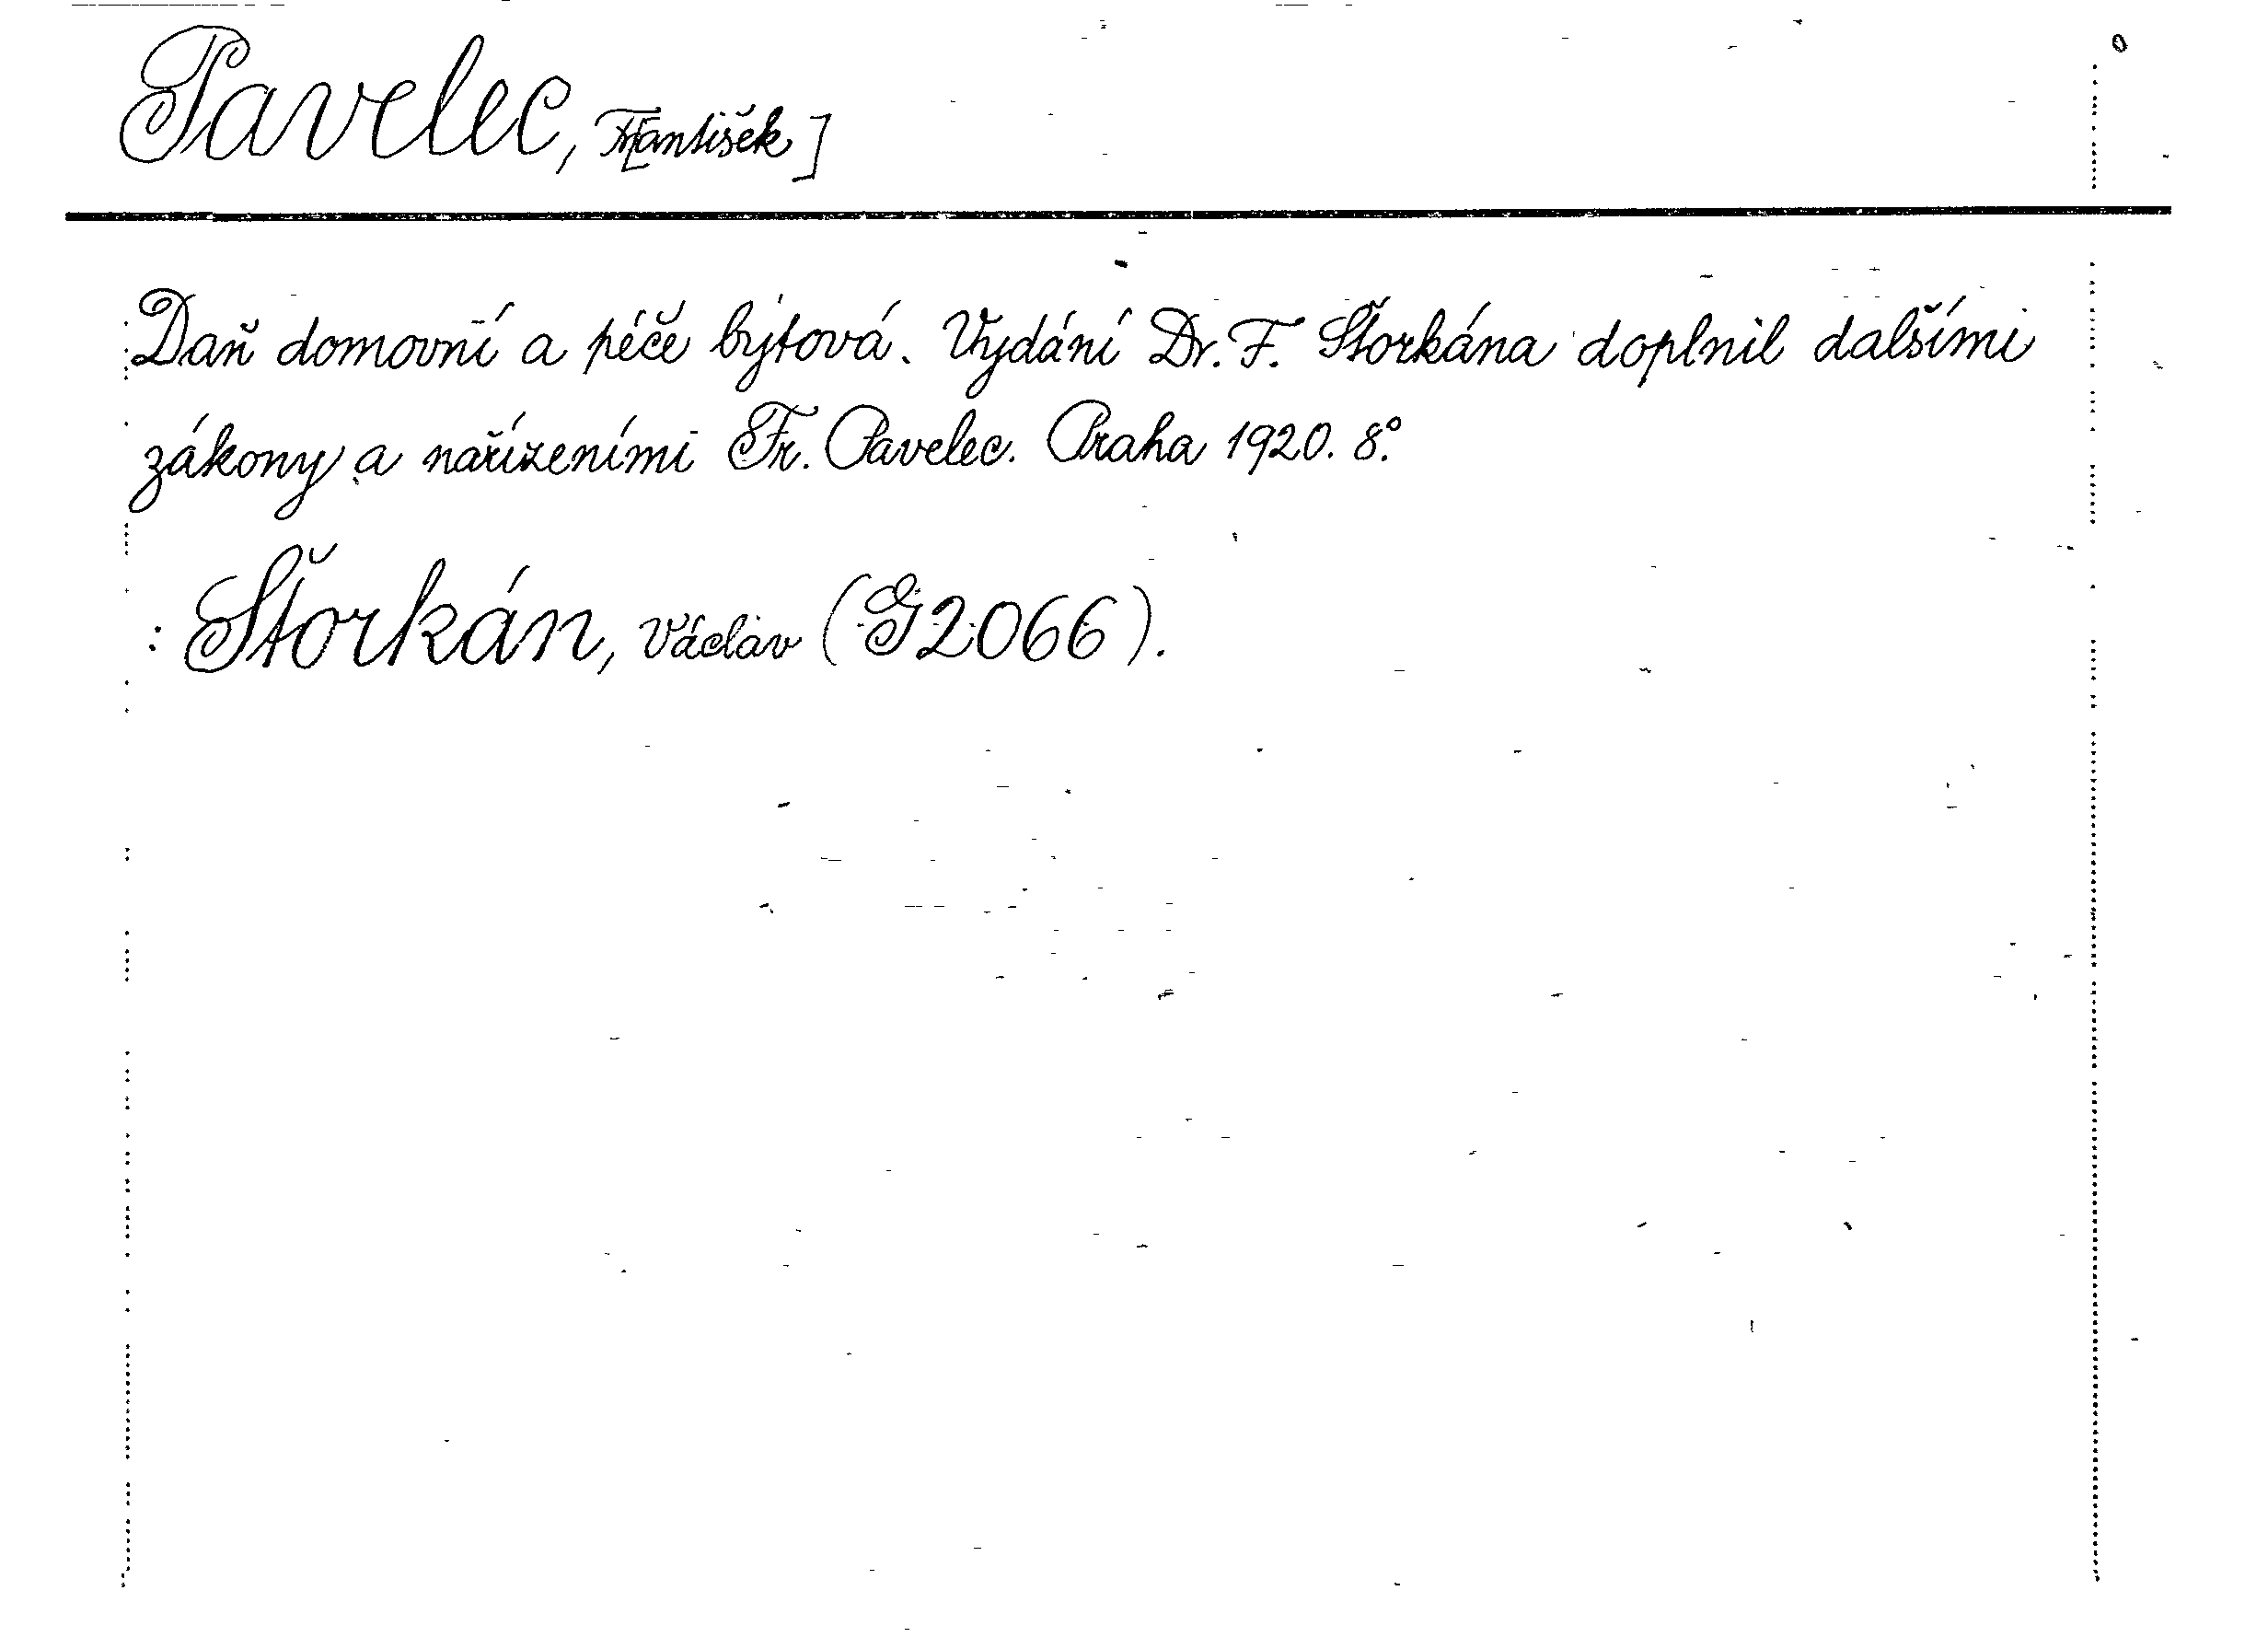 Pavelec, Fr[antišek]
Daň domovní a péče bytová. Vydání Dr. F. Štorkána doplnil dalšími
zákony a nařízeními Fr. Pavelec. Praha 1920. 8°.
: Štorkán, Václav (G 2066).